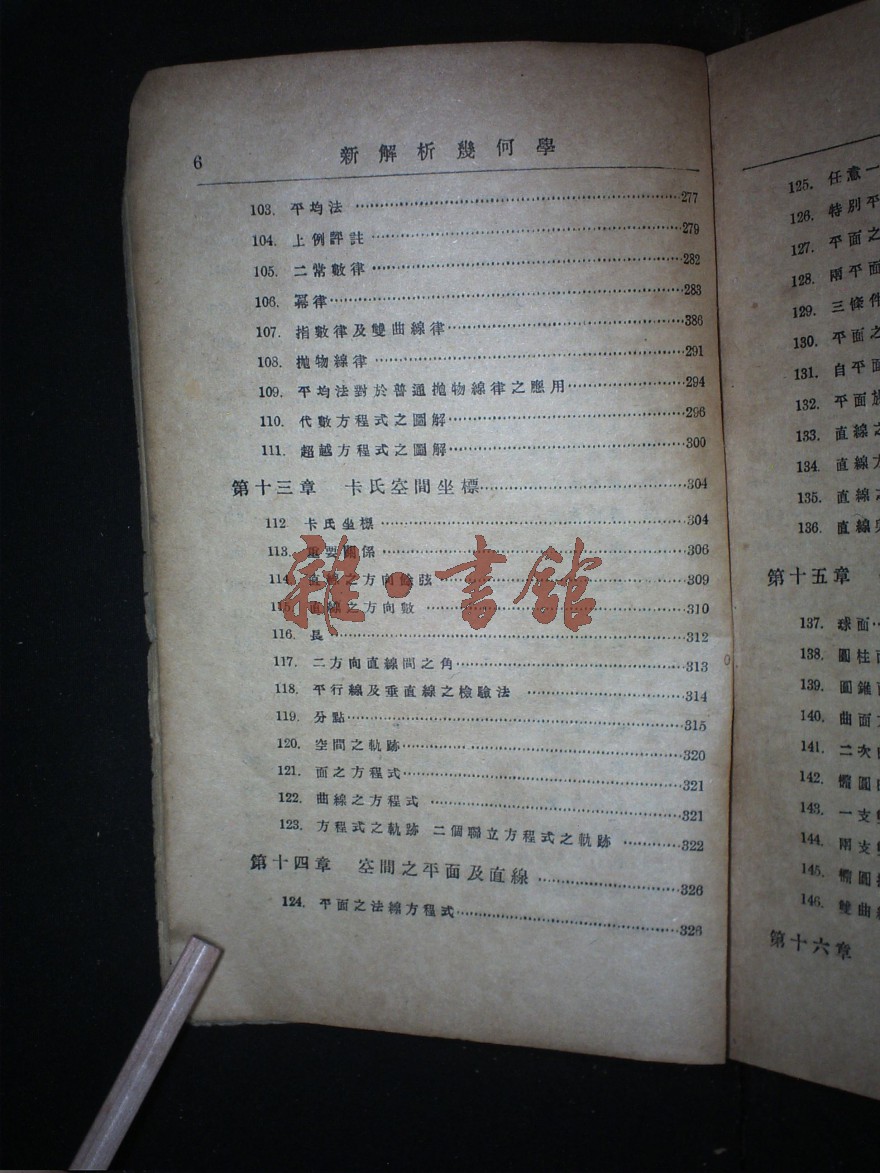 6 新解析幾何學
103. 平均法 ………277
104. 上例評註………279
105. 二常數律………282
106. 冪律………283
107. 指數律及雙曲線律………386
108. 拋物線律………291
109. 平均法對於普通拋物線律之應用………294
110. 代數方程式之圖解………296
111. 超越方程式之圖解………300
第十三章 卡氏空間坐標………304
112. 卡氏坐標………304
113. 重要關係………306
114. 直線之方向餘弦………309
115. 直線之方向數………310
116. 長………312
117. 二方向直線間之角………313
118. 平行線及垂直線之檢驗法………314
119. 分點………315
120. 空間之軌跡………320
121. 面之方程式………321
122. 曲線之方程式………321
123. 方程式之軌跡 二個聯立方程式之軌跡………322
第十四章 空間之平面及直線………326
124. 平面之法線方程式………326
雜·書館
125. 任意一
126. 特別平
127. 平面之
128. 兩平面
129. 三條件
130. 平面之
131. 自平面
132. 平面族
133. 直線之
134. 直線方
135. 直線之
136. 直線與
第十五章
137. 球面…
138. 圓柱面
139. 圓錐面
140. 曲面方
141. 二次
142. 橢圓
143. 一支雙
144. 兩支雙
145. 橢圓拋
146. 雙曲線
第十六章